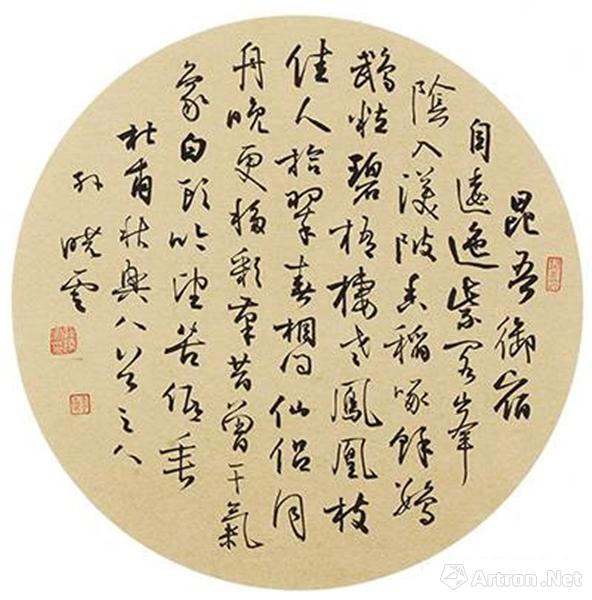 昆吾御宿
自逶迤紫閣峯
陰入渼陂香稻啄餘鸚
鵡粒碧梧棲老鳳凰枝
佳人拾翠春相問仙侶同
舟晚更移彩筆昔曾干氣
象白頭吟望苦低垂
杜甫秋興八首之八
孫曉雲
Artron.Net